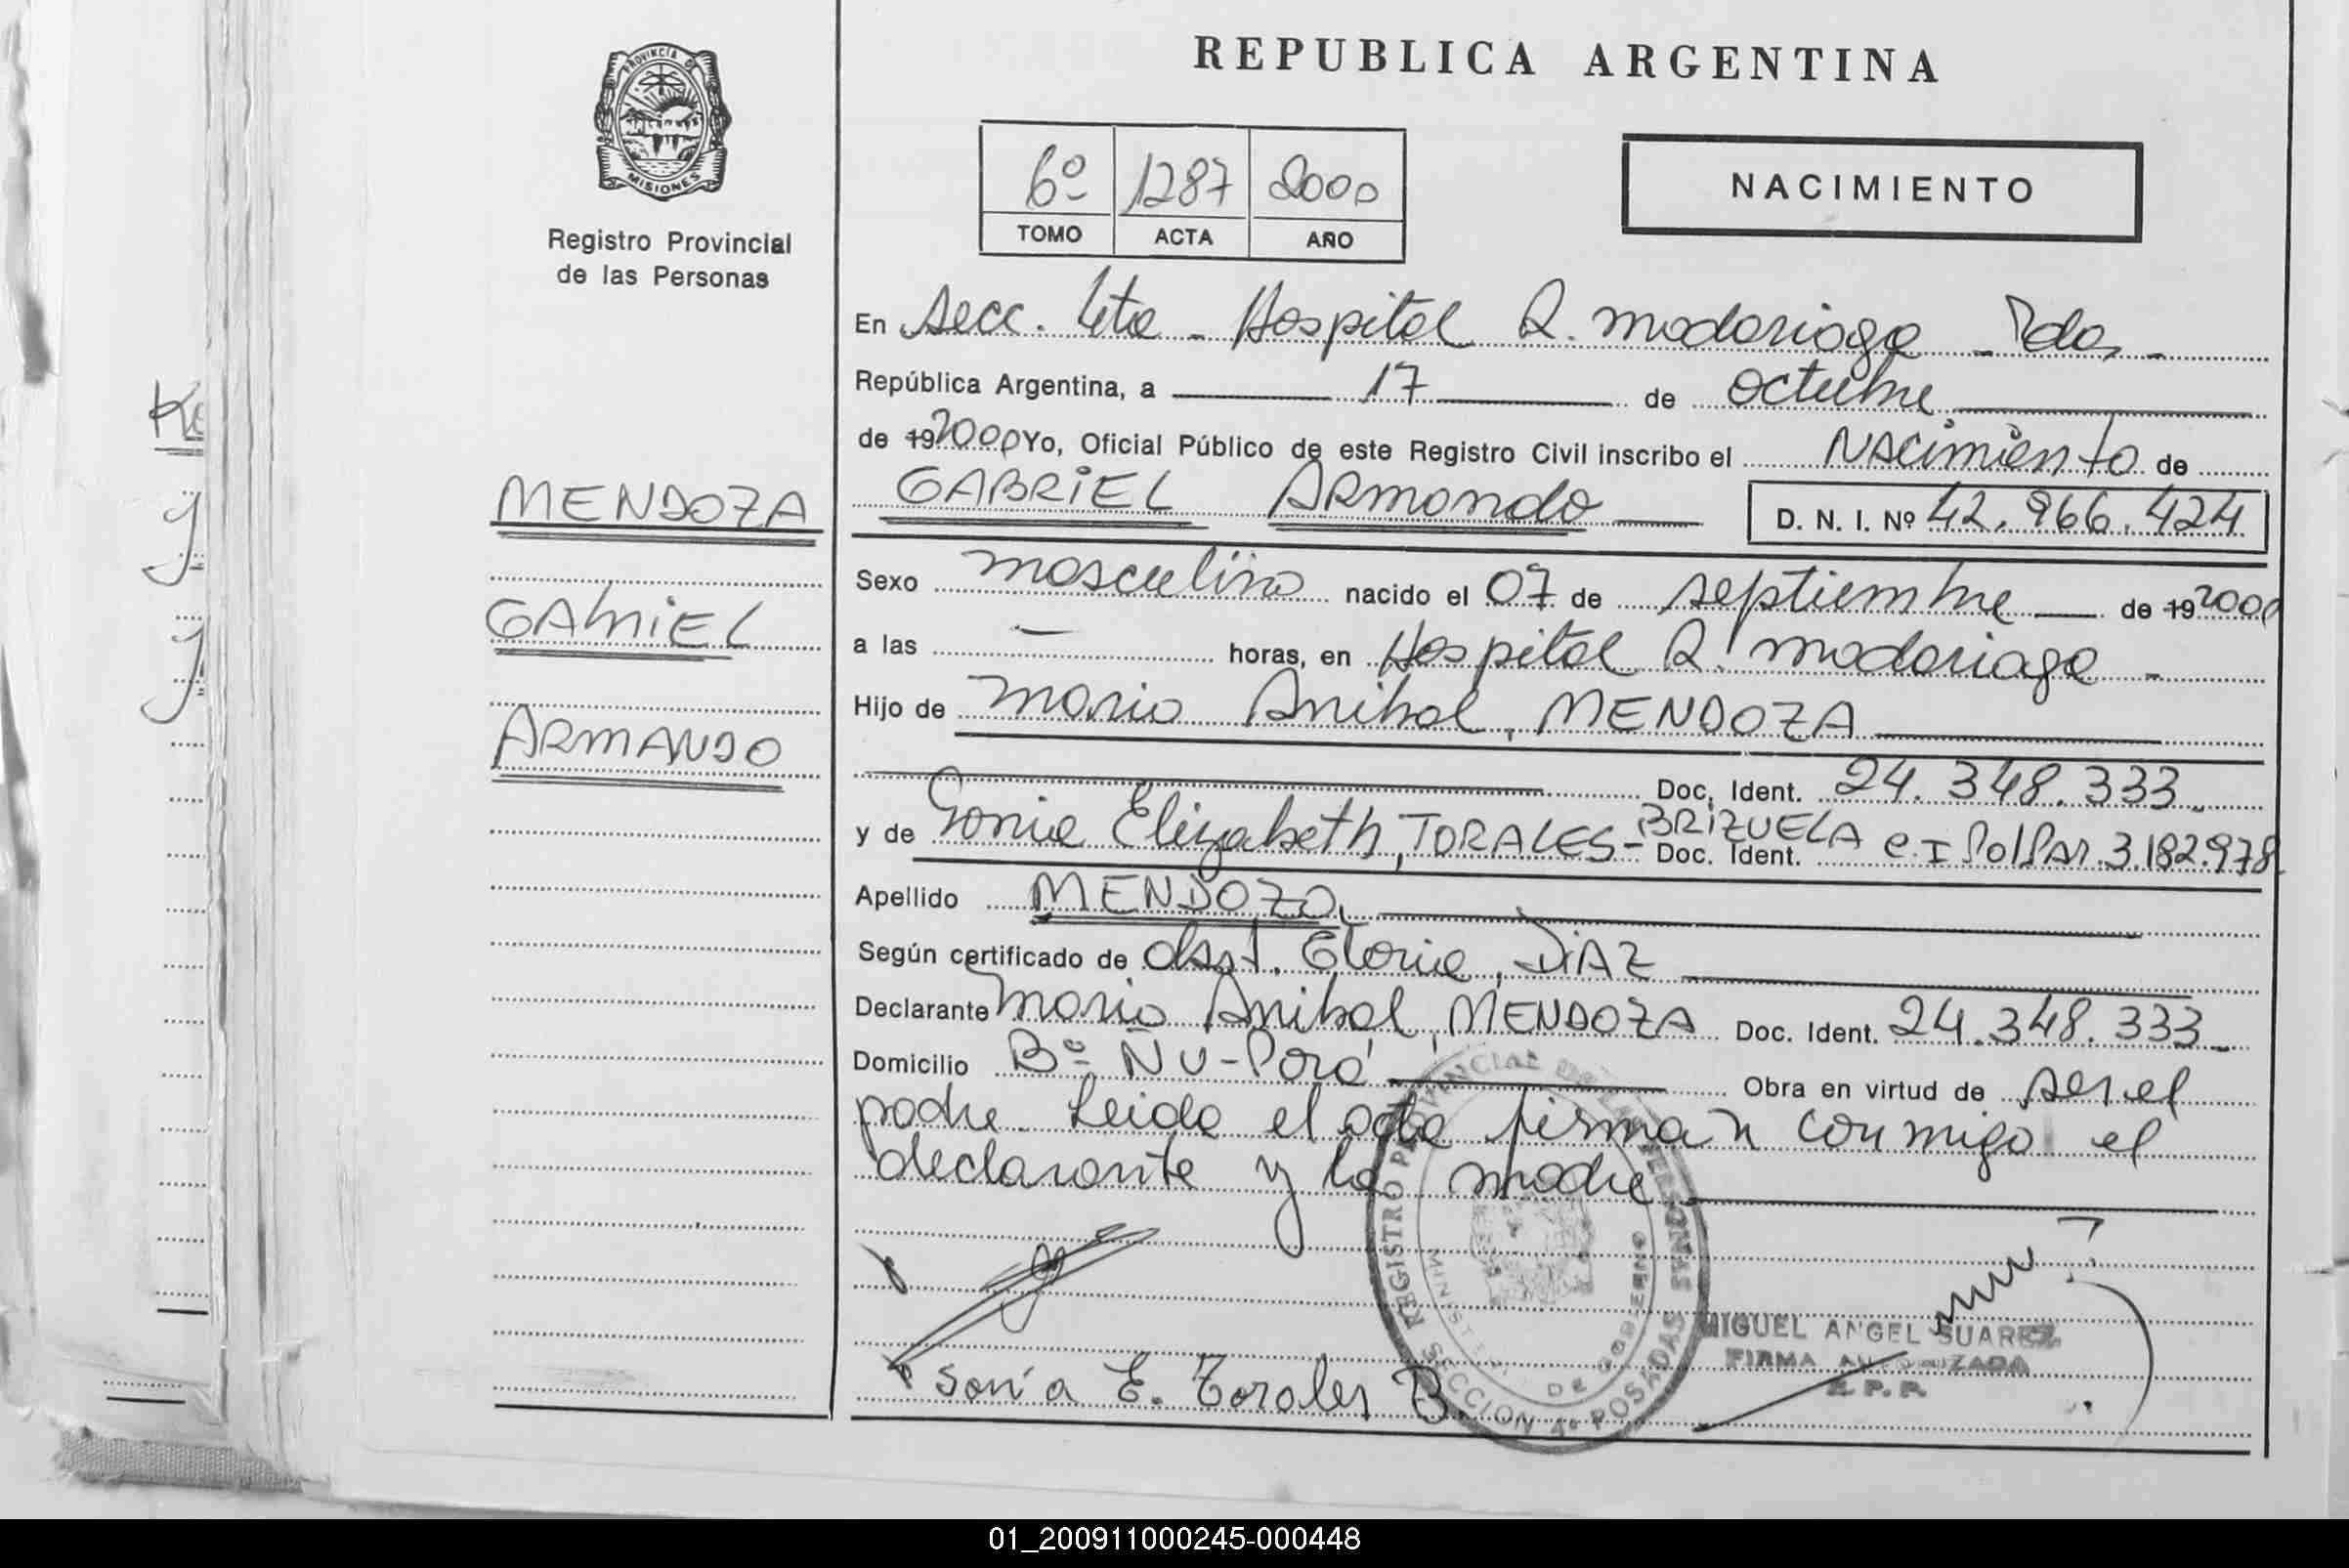 PROVINCIA DE
MISIONES
Registro Provincial
de las Personas
MENDOZA
GAbriEL
ARMANDO
REPUBLICA ARGENTINA
6º 1287 2000
TOMO ACTA AÑO
NACIMIENTO
En Secc. 4ta - Hospital R. Madariaga - Pdas -
República Argentina, a 17 de octubre
de 19 2000 Yo, Oficial Público de este Registro Civil inscribo el NAcimiento de
GABRiEL ARmando D. N. I. Nº 42.966.424
Sexo masculino nacido el 07 de septiembre de 19 2000
a las — horas, en Hospital R. Madariaga -
Hijo de Mario Anibal, MENDOZA
Doc. Ident. 24.348.333.
y de Sonia Elizabeth, TORALES - BRiZUELA Doc. Ident. C.I Pol Par. 3.182.978
Apellido MENDOZa,
Según certificado de obst. Gloria, DiAZ
Declarante Mario Anibal, MENDOZA Doc. Ident. 24.348.333 -
Domicilio Bº Ñu-Porá Obra en virtud de ser el
padre. Leida el acta firman conmigo el
declarante y la madre
REGISTRO PROVINCIAL DE LAS PERSONAS
MINISTERIO DE GOBIERNO
SECCION 4º POSADAS
MIGUEL ANGEL SUAREZ
FIRMA AUTORIZADA
R. P. P.
Sonia E. Torales B.
01_200911000245-000448